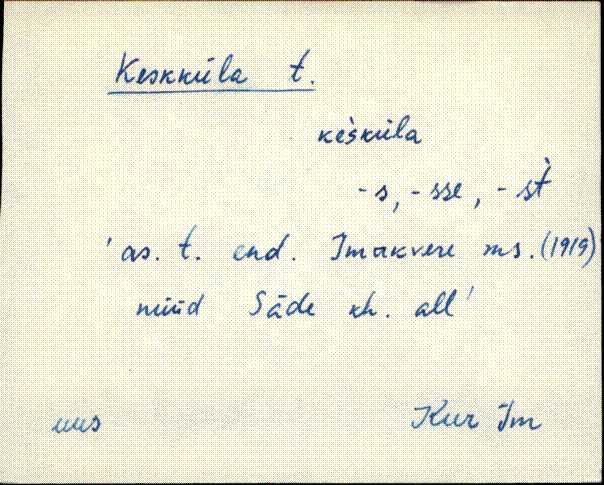 Keskküla t.
kèsküla
-s, -sse, -st̀
'as. t. end. Imukvere ms. (1919)
nüüd Säde kh. all'
uus
Kur Im